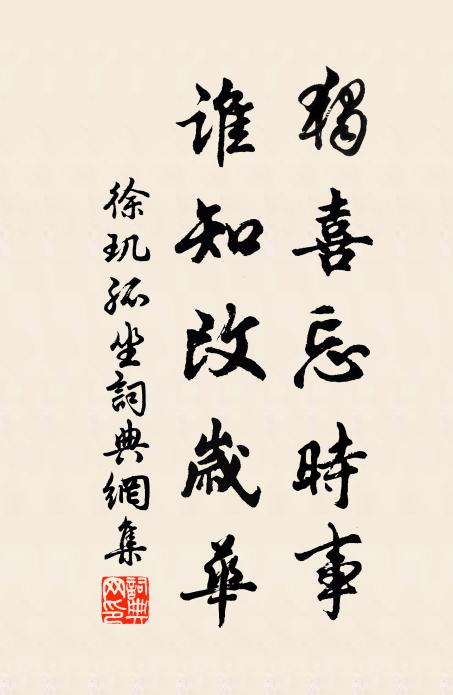 獨喜忘時事
誰知改歲華
徐玑孤坐詞典網集
詞典网印